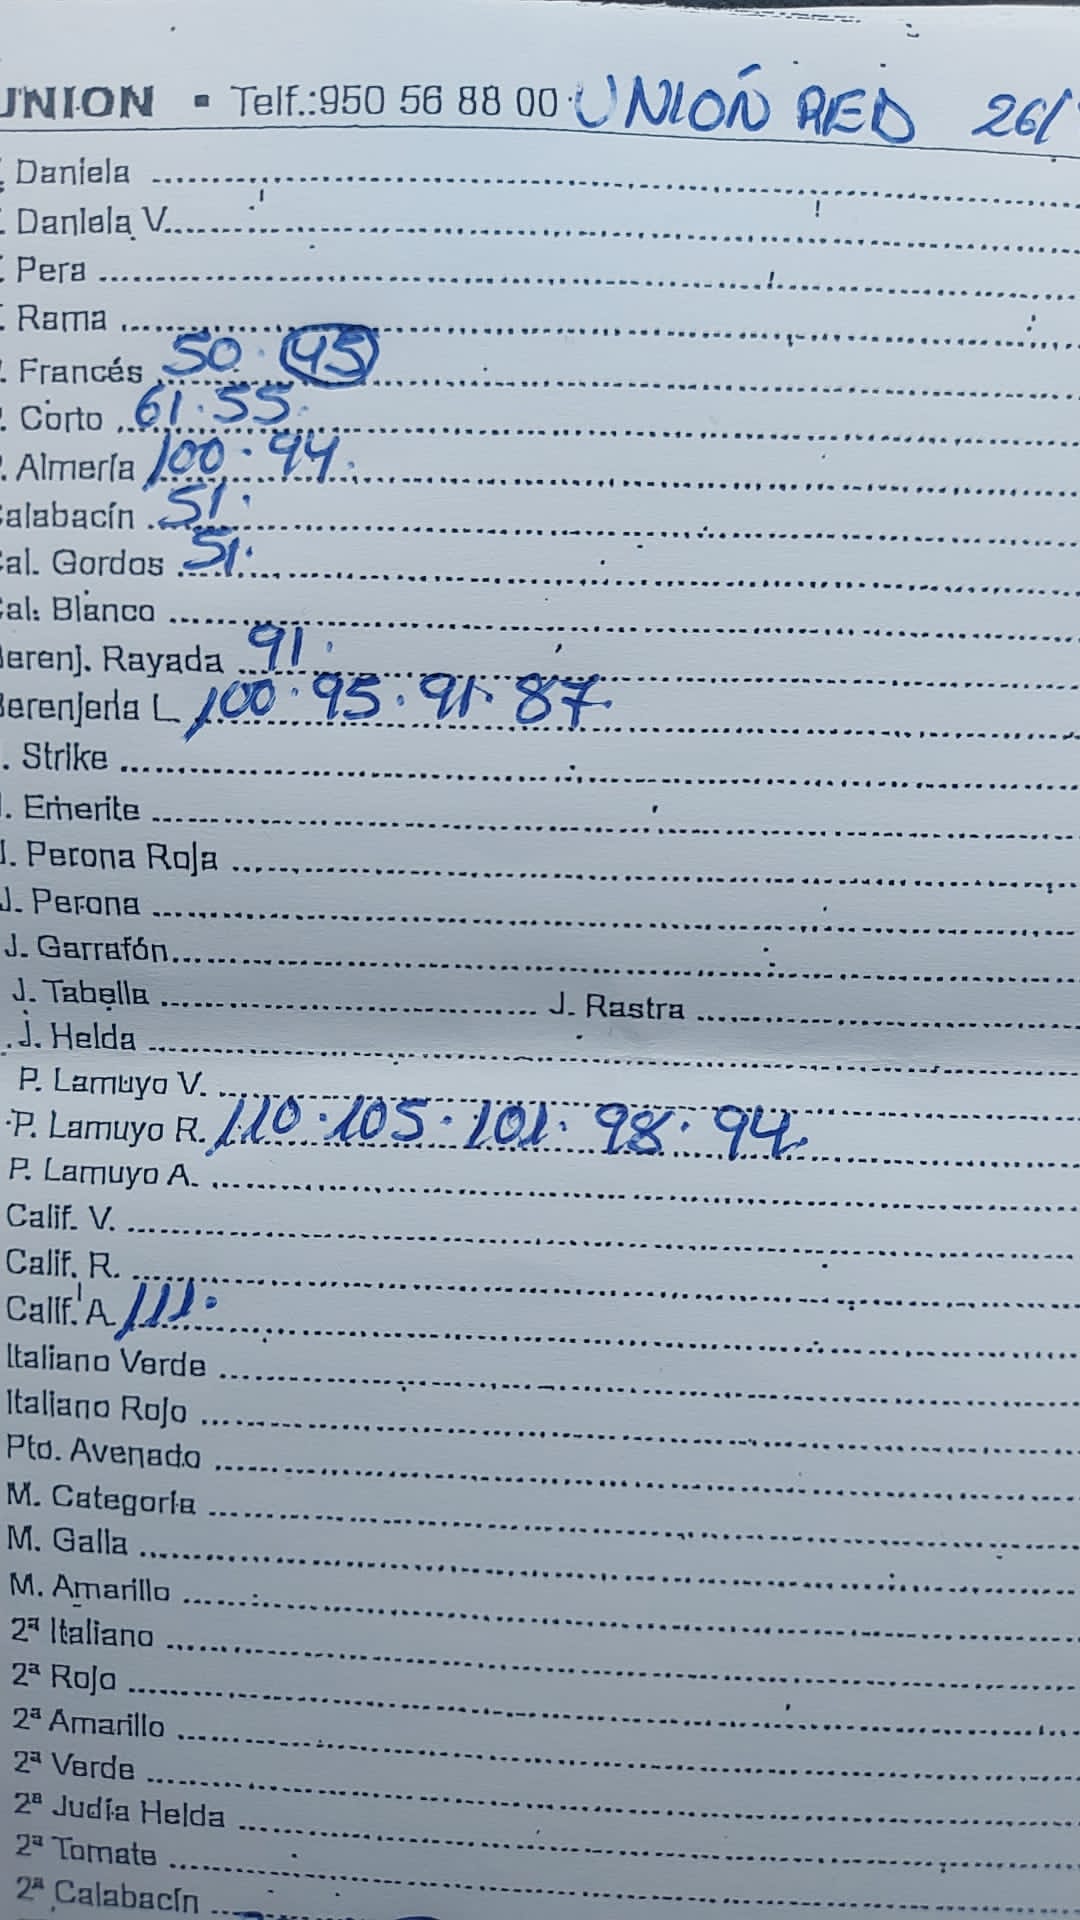 UNION - Telf.:950 56 88 00 UNIÓN RED 26/
Daniela
Daniela V.
Pera
Rama
Francés 50. 45
Corto 61. 55.
Almería 100. 94.
alabacín 51.
al. Gordos 51.
al. Blanco
erenj. Rayada 91.
Berenjena L 100. 95. 91. 87.
. Strike
. Emerite
J. Perona Roja
J. Perona
J. Garrafón
J. Tabella J. Rastra
J. Helda
P. Lamuyo V.
P. Lamuyo R. 110. 105. 101. 98. 94.
P. Lamuyo A.
Calif. V.
Calif. R.
Calif. A 111.
Italiano Verde
Italiano Rojo
Pto. Avenado
M. Categoría
M. Galla
M. Amarillo
2ª Italiano
2ª Rojo
2ª Amarillo
2ª Verde
2ª Judía Helda
2ª Tomate
2ª Calabacín